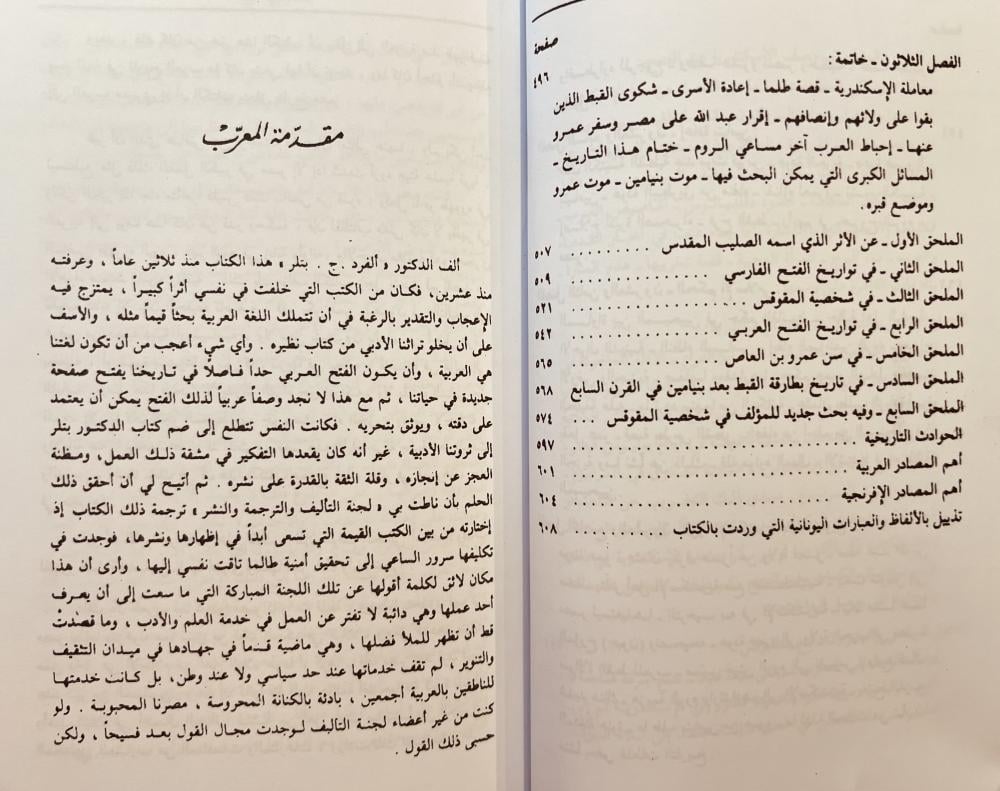 صفحة
الفصل الثلاثون ـ خاتمة :
٤٩٦
معاملة الإسكندرية ـ قصة طلما ـ إعادة الأسرى ـ شكوى القبط الذين
بقوا على ولائهم وإنصافهم ـ إقرار عبد الله على مصر وسفر عمرو
عنها ـ إحباط العرب آخر مساعي الروم ـ ختام هذا التاريخ ـ
المسائل الكبرى التي يمكن البحث فيها ـ موت بنيامين ـ موت عمرو
وموضع قبره .
الملحق الأول ـ عن الأثر الذي اسمه الصليب المقدس . . . . . . . ٥٠٧
الملحق الثاني ـ في تواريخ الفتح الفارسي . . . . . . . . . . . . ٥٠٩
الملحق الثالث ـ في شخصية المقوقس . . . . . . . . . . . . . . ٥٢١
الملحق الرابع ـ في تواريخ الفتح العربي . . . . . . . . . . . . ٥٤٢
الملحق الخامس ـ في سن عمرو بن العاص . . . . . . . . . . . ٥٦٥
الملحق السادس ـ في تاريخ بطارقة القبط بعد بنيامين في القرن السابع ٥٦٨
الملحق السابع ـ وفيه بحث جديد للمؤلف في شخصية المقوقس . . . ٥٧٤
الحوادث التاريخية . . . . . . . . . . . . . . . . . . . . . . ٥٩٧
أهم المصادر العربية . . . . . . . . . . . . . . . . . . . . . ٦٠١
أهم المصادر الإفرنجية . . . . . . . . . . . . . . . . . . . . ٦٠٤
تذييل بالألفاظ والعبارات اليونانية التي وردت بالكتاب . . . . . . ٦٠٨
مقدّمة المعرّب
ألف الدكتور « الفرد . ج . بتلر » هذا الكتاب منذ ثلاثين عاماً ، وعرفته
منذ عشرين، فكان من الكتب التي خلفت في نفسي أثراً كبيراً ، يمتزج فيه
الإعجاب والتقدير بالرغبة في أن تتملك اللغة العربية بحثاً قيماً مثله ، والأسف
على أن يخلو تراثنا الأدبي من كتاب نظيره . وأي شيء أعجب من أن تكون لغتنا
هي العربية ، وأن يكون الفتح العربي حداً فاصلاً في تاريخنا يفتح صفحة
جديدة في حياتنا ، ثم مع هذا لا نجد وصفاً عربياً لذلك الفتح يمكن أن يعتمد
على دقته ، ويوثق بتحريه . فكانت النفس تتطلع إلى ضم كتاب الدكتور بتلر
إلى ثروتنا الأدبية ، غير أنه كان يقعدها التفكير في مشقة ذلك العمل، ومظنة
العجز عن إنجازه ، وقلة الثقة بالقدرة على نشره . ثم أتيح لي أن أحقق ذلك
الحلم بأن ناطت بي « لجنة التأليف والترجمة والنشر » ترجمة ذلك الكتاب إذ
إختارته من بين الكتب القيمة التي تسعى أبداً في إظهارها ونشرها، فوجدت في
تكليفها سرور الساعي إلى تحقيق أمنية طالما تاقت نفسي إليها ، وأرى أن هذا
مكان لائق لكلمة أقولها عن تلك اللجنة المباركة التي ما سعت إلى أن يعرف
أحد عملها وهي دائبة لا تفتر عن العمل في خدمة العلم والأدب ، وما قصدتْ
قط أن تظهر للملأ فضلها ، وهي ماضية قدماً في جهادها في ميدان التثقيف
والتنوير ، لم تقف خدماتها عند حد سياسي ولا عند وطن، بل كانت خدمتها
للناطقين بالعربية أجمعين ، بادئة بالكنانة المحروسة ، مصرنا المحبوبة . ولو
كنت من غير أعضاء لجنة التأليف لوجدت مجال القول بعد فسيحاً ، ولكن
حسبى ذلك القول .